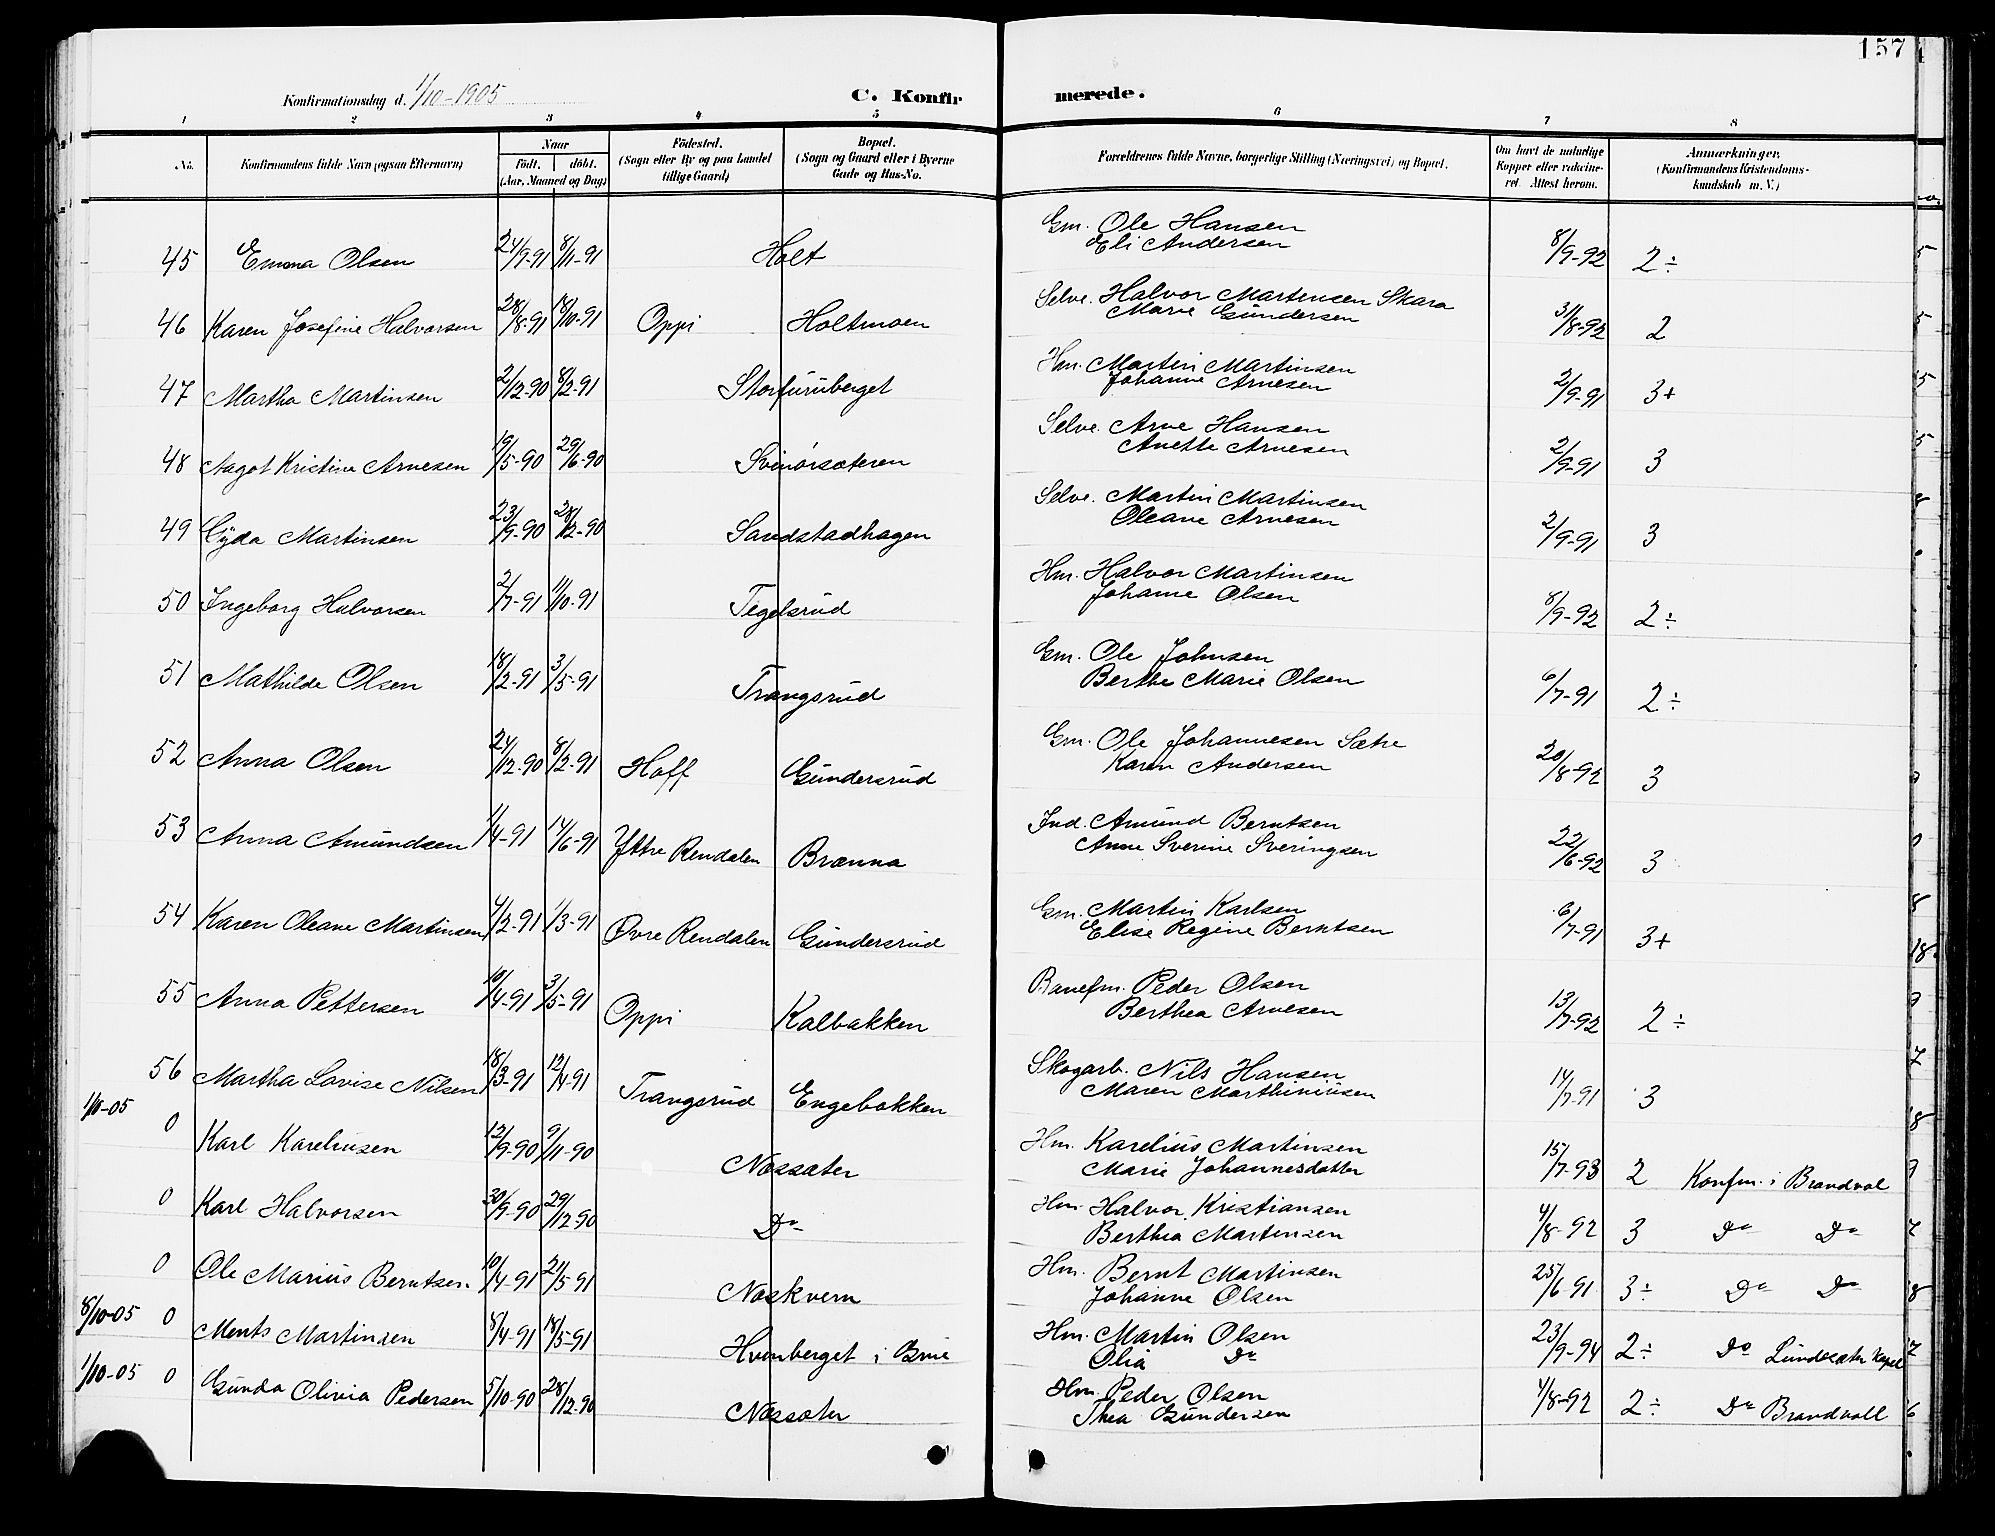 157
Konfirmationsdag d. 1/10-1905 C. Konfirmerede.
1 2 3 4 5 6 7 8
No. Konfirmandens fulde Navn (ogsaa Efternavn) Naar födt. döbt. (Aar, Maaned og Dag) Födested. (Sogn eller By og paa Landet tillige Gaard) Bopæl. (Sogn og Gaard eller i Byerne Gade og Hus-No. Forældrenes fulde Navne, borgerlige Stilling (Næringsvei) og Bopæl. Om havt de naturlige Kopper eller vakcineret. Attest herom. Anmærkninger. (Konfirmandens Kristendomskundskab m. V.)
45 Emma Olsen 24/9-91 8/11-91 Holt Gm. Ole Hansen
Eli Andersen 8/9-92 2÷
46 Karen Josefine Halvorsen 28/8-91 18/10-91 Oppi Holtmoen Selve. Halvor Martensen Skara
Marie Gundersen 31/8-92 2
47 Martha Martinsen 2/12-90 8/2-91 Storfuruberget Hm. Martin Martinsen
Johanne Arnesen 2/9-91 3+
48 Aagot Kristine Arnesen 19/5-90 29/6-90 Svinörsæteren Selve. Arne Hansen
Anette Arnesen 2/9-91 3
49 Gyda Martinsen 23/9-90 28/12-90 Sandstadhagen Selve. Martin Martinsen
Oleane Arnesen 2/9-91 3
50 Ingeborg Halvorsen 2/7-91 11/10-91 Tegelsrud Hm. Halvor Martinsen
Johanne Olsen 8/9-92 2÷
51 Mathilde Olsen 18/2-91 3/5-91 Trangsrud Gm. Ole Johnsen
Berthe Marie Olsen 6/7-91 2÷
52 Anna Olsen 24/12-90 8/2-91 Hoff Gundersrud Gm. Ole Johannesen Sætre
Karen Andersen 20/8-92 3
53 Anna Amundsen 1/4-91 14/6-91 Yttre Rendalen Brænna Ind. Amund Berntsen
Anne Sverine Sveringsen 22/6-92 3
54 Karen Oleane Martinsen 4/2-91 1/3-91 Øvre Rendalen Gundersrud Gm. Martin Karlsen
Elise Regine Berntsen 6/7-91 3+
55 Anna Pettersen 10/4-91 3/5-91 Oppi Kalbakken Banefm. Peder Olsen
Berthea Arnesen 13/7-92 2÷
56 Martha Lovise Nilsen 18/3-91 12/4-91 Trangsrud Engebakken Skogarb. Nils Hansen
Maren Marthiniusen 14/7-91 3
1/10-05 0 Karl Kareliusen 12/9-90 9/11-90 Næssæter Hm. Karelius Martinsen
Marie Johannesdatter 15/7-93 2 Konfm. i Brandval
0 Karl Halvorsen 30/9-90 29/12-90 Do Hm. Halvor Kristiansen
Berthea Martensen 4/8-92 3 Do Do
0 Ole Marius Berntsen 10/4-91 21/5-91 Næskvern Hm. Bernt Martinsen
Johanne Olsen 25/6-91 3÷ Do Do
8/10-05 0 Ments Martinsen 8/4-91 18/5-91 Hvenberget i Brue Hm. Martin Olsen
Olia Do 23/9-94 2÷ Do Lundersæter Kapel
1/10-05 0 Gunda Olivia Pedersen 5/10-90 28/12-90 Næssæter Hm. Peder Olsen
Thea Gundersen 4/8-92 2÷ Do Brandvoll